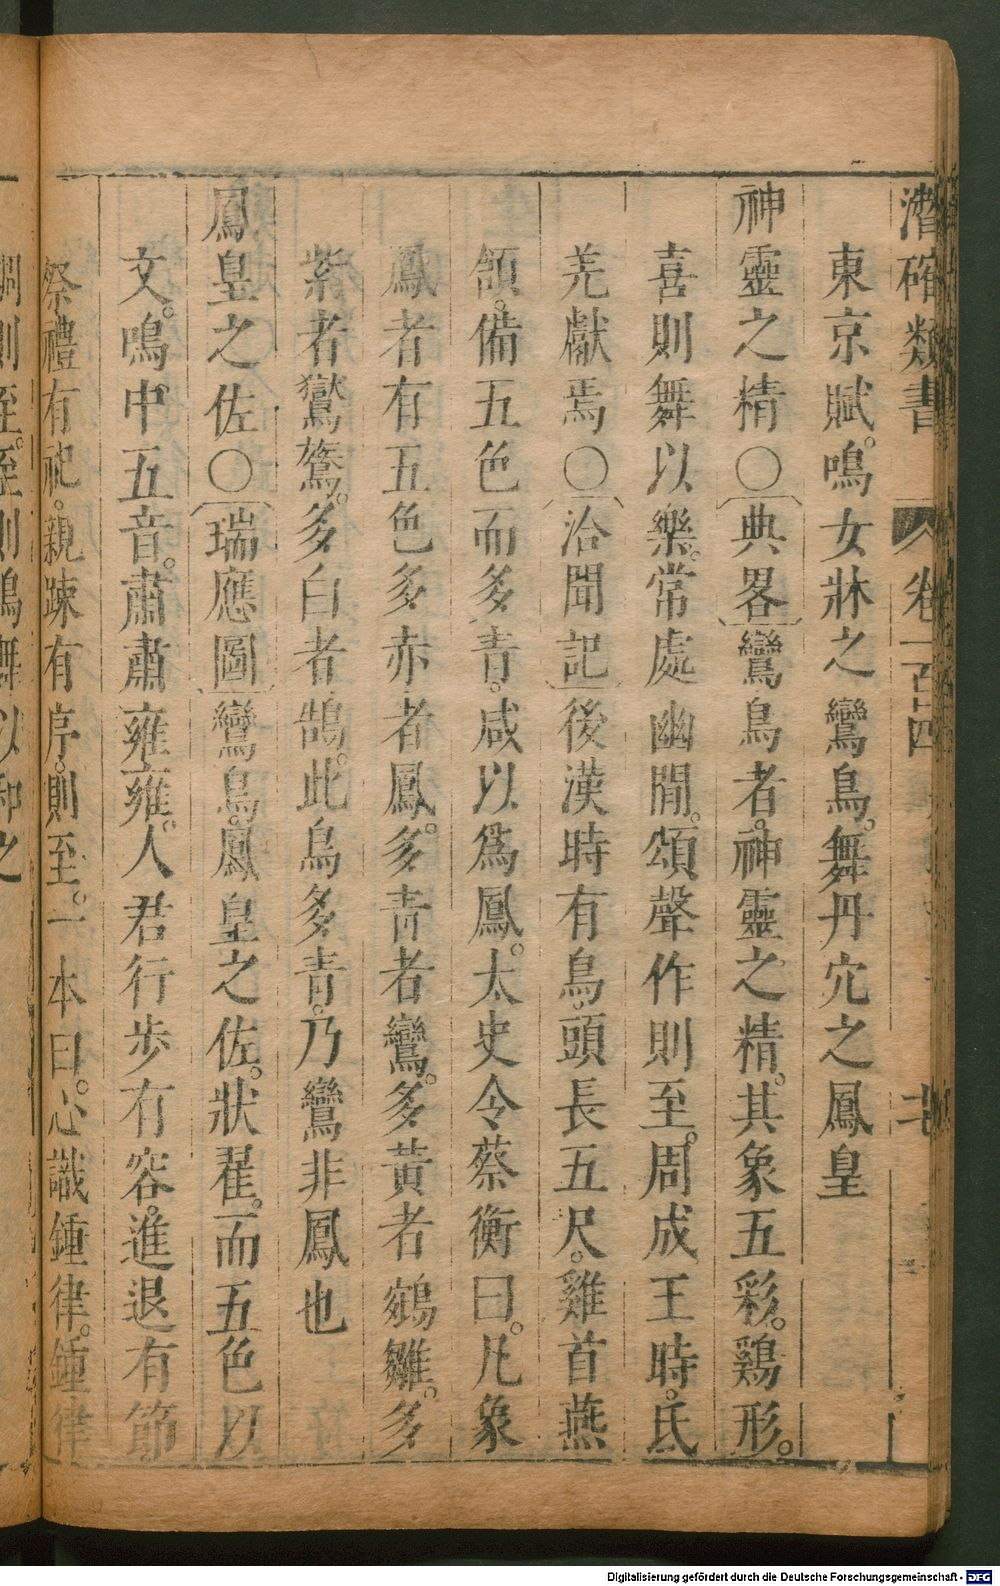 潛確類書 卷一百四
東京賦。鳴女牀之鸞鳥。舞丹穴之鳳皇
神靈之精○典畧鸞鳥者。神靈之精。其象五彩。鷄形。
喜則舞以樂。常處幽閒。頌聲作則至。周成王時。氐
羌獻焉○洽聞記後漢時有鳥。頭長五尺。雞首燕
頷。備五色而多青。咸以爲鳳。太史令蔡衡曰。凡象
鳳者有五色多赤者鳳。多青者鸞。多黃者鵷雛。多
紫者鸑鷟。多白者鵠。此鳥多青。乃鸞非鳳也
鳳皇之佐○瑞應圖鸞鳥。鳳皇之佐。狀翟。而五色以
文。鳴中五音。肅肅雍雍。人君行步有容。進退有節
祭禮有祀。親踈有序。則至。一本曰。心識鍾律。鍾律
調則至。至則鳴舞以和之
Digitalisierung gefördert durch die Deutsche Forschungsgemeinschaft - DFG